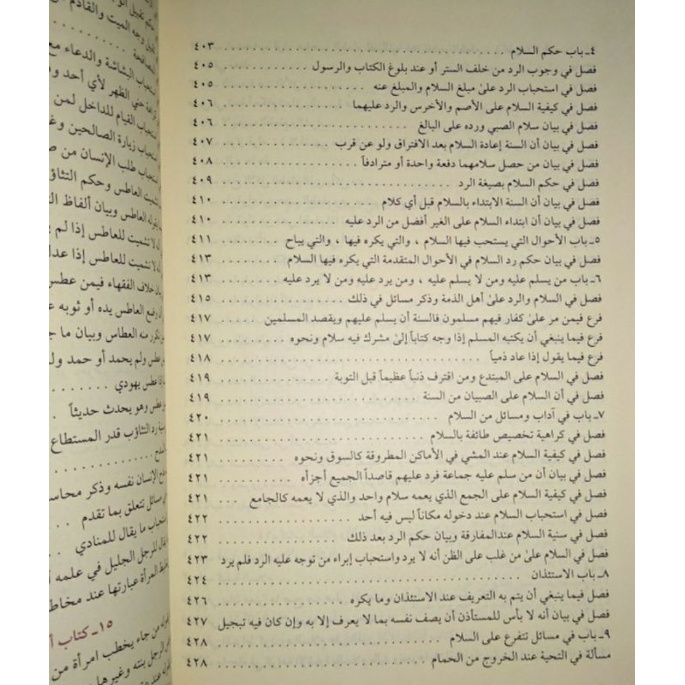 ٤ـ باب حكم السلام ........ ٤٠٣
فصل في وجوب الرد من خلف الستر أو عند بلوغ الكتاب والرسول ........ ٤٠٥
فصل في استحباب الرد على مبلغ السلام والمبلغ عنه ........ ٤٠٥
فصل في كيفية السلام على الأصم والأخرس والرد عليهما ........ ٤٠٦
فصل في بيان سلام الصبي ورده على البالغ ........ ٤٠٦
فصل في بيان أن السنة إعادة السلام بعد الافتراق ولو عن قرب ........ ٤٠٧
فصل في بيان من حصل سلامهما دفعة واحدة أو مترادفاً ........ ٤٠٨
فصل في حكم السلام بصيغة الرد ........ ٤٠٩
فصل في بيان أن السنة الابتداء بالسلام قبل أي كلام ........ ٤١٠
فصل في بيان أن ابتداء السلام على الغير أفضل من الرد عليه ........ ٤١٠
٥ـ باب الأحوال التي يستحب فيها السلام ، والتي يكره فيها ، والتي يباح ........ ٤١١
فصل في بيان حكم رد السلام في الأحوال المتقدمة التي يكره فيها السلام ........ ٤١٣
٦ـ باب من يسلم عليه ومن لا يسلم عليه ، ومن يرد عليه ومن لا يرد عليه ........ ٤١٣
فصل في السلام والرد على أهل الذمة وذكر مسائل في ذلك ........ ٤١٥
فرع فيمن مر على كفار فيهم مسلمون فالسنة أن يسلم عليهم ويقصد المسلمين ٤١٧
فرع فيما ينبغي أن يكتبه المسلم إذا وجه كتاباً إلى مشرك فيه سلام ونحوه ........ ٤١٧
فرع فيما يقول إذا عاد ذمياً ........ ٤١٨
فصل في السلام على المبتدع ومن اقترف ذنباً عظيماً قبل التوبة ........ ٤١٩
فصل في أن السلام على الصبيان من السنة ........ ٤١٩
٧ـ باب في آداب ومسائل من السلام ........ ٤٢٠
فصل في كراهية تخصيص طائفة بالسلام ........ ٤٢١
فصل في كيفية السلام عند المشي في الأماكن المطروقة كالسوق ونحوه ........ ٤٢١
فصل في بيان أن من سلم عليه جماعة فرد عليهم قاصداً الجميع أجزأه ........ ٤٢١
فصل في كيفية السلام على الجمع الذي يعمه سلام واحد والذي لا يعمه كالجامع ٤٢١
فصل في استحباب السلام عند دخوله مكاناً ليس فيه أحد ........ ٤٢٢
فصل في سنية السلام عند المفارقة وبيان حكم الرد بعد ذلك ........ ٤٢٢
فصل في السلام على من غلب على الظن أنه لا يرد واستحباب إبراء من توجه عليه الرد فلم يرد ٤٢٣
٨ـ باب الاستئذان ........ ٤٢٤
فصل فيما ينبغي أن يتم به التعريف عند الاستئذان وما يكره ........ ٤٢٦
فصل في بيان أنه لا بأس للمستأذن أن يصف نفسه بما لا يعرف إلا به وإن كان فيه تبجيل ٤٢٧
٩ـ باب في مسائل تتفرع على السلام ........ ٤٢٨
مسألة في التحية عند الخروج من الحمام ........ ٤٢٨
وجه الميت والقادم
المصافحة
البشاشة والدعاء مع
حني الظهر لأي أحد
القيام للداخل لمن
زيارة الصالحين
طلب الإنسان من
العاطس وحكم التثاؤب
العاطس وبيان ألفاظ
تشميت للعاطس إذا لم
تشميت للعاطس إذا
خلاف الفقهاء فيمن عطس
العاطس يده أو ثوبه
منه العطاس وبيان ما
عطس ولم يحمد أو حمد
عطس يهودي
عطس وهو يحدث حديثاً
رد التثاؤب قدر المستطاع
الإنسان نفسه وذكر
مسائل تتعلق بما تقدم
ما يقال للمنادي
للرجل الجليل في علمه
المرأة عبارتها عند
١٥ـ كتاب
من جاء يخطب امرأة من
الرجل بنته وغيرها